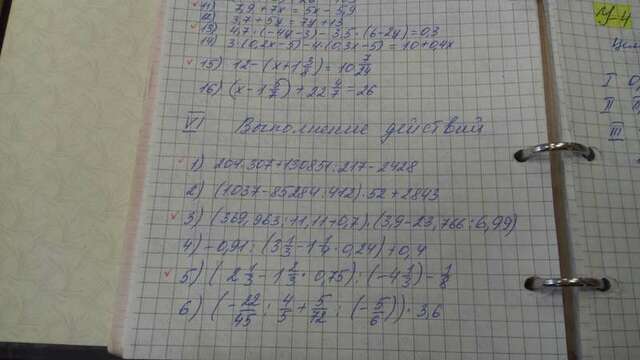 11) 7,9+7x = 5x - 3,9
12) 3,7+5y = 7y+13
13) 4,7·(-4y-3)-3,5·(6-2y)=0,3
14) 3·(0,2x-5)-4·(0,3x-5)=10+0,4x
15) 12-(x+1 3/8)=10 7/24
16) (x-1 5/7)+22 4/7=26
VI Выполнение действий
1) 201·307+130851:217-2428
2) (1037-85284:412)·52+2843
3) (369,963:11,11+0,7)·(3,9-23,766:6,99)
4) -0,91:(3 1/3-1 1/4·0,24)+0,4
5) (2 1/3-1 2/3·0,75):(-4 1/3)-1/8
6) (-22/45:4/5+5/72:(-5/6))·3,6
У-4
I
II
III